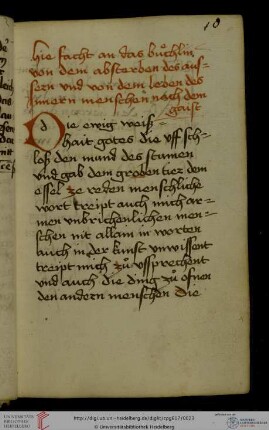 10
hie facht an das buͦchlin
von dem absterben des aus-
sern und von dem leben des
innern menschen nach dem
gaist
Die ewig weiß-
hait gotes die uff sch-
loß den mund des stumen
und gab dem groben tier dem
essel ze reden menschliche
wort treipt auch mich ar-
men unbrichenlichen men-
schen nit allain in worten
auch in der kunst unwissent
treipt mich zuͦ ussprechent
und auch die ding zuͦ ofnen
den andern menschen die
http://digi.ub.uni-heidelberg.de/diglit/cpg617/0023
© Universitätsbibliothek Heidelberg